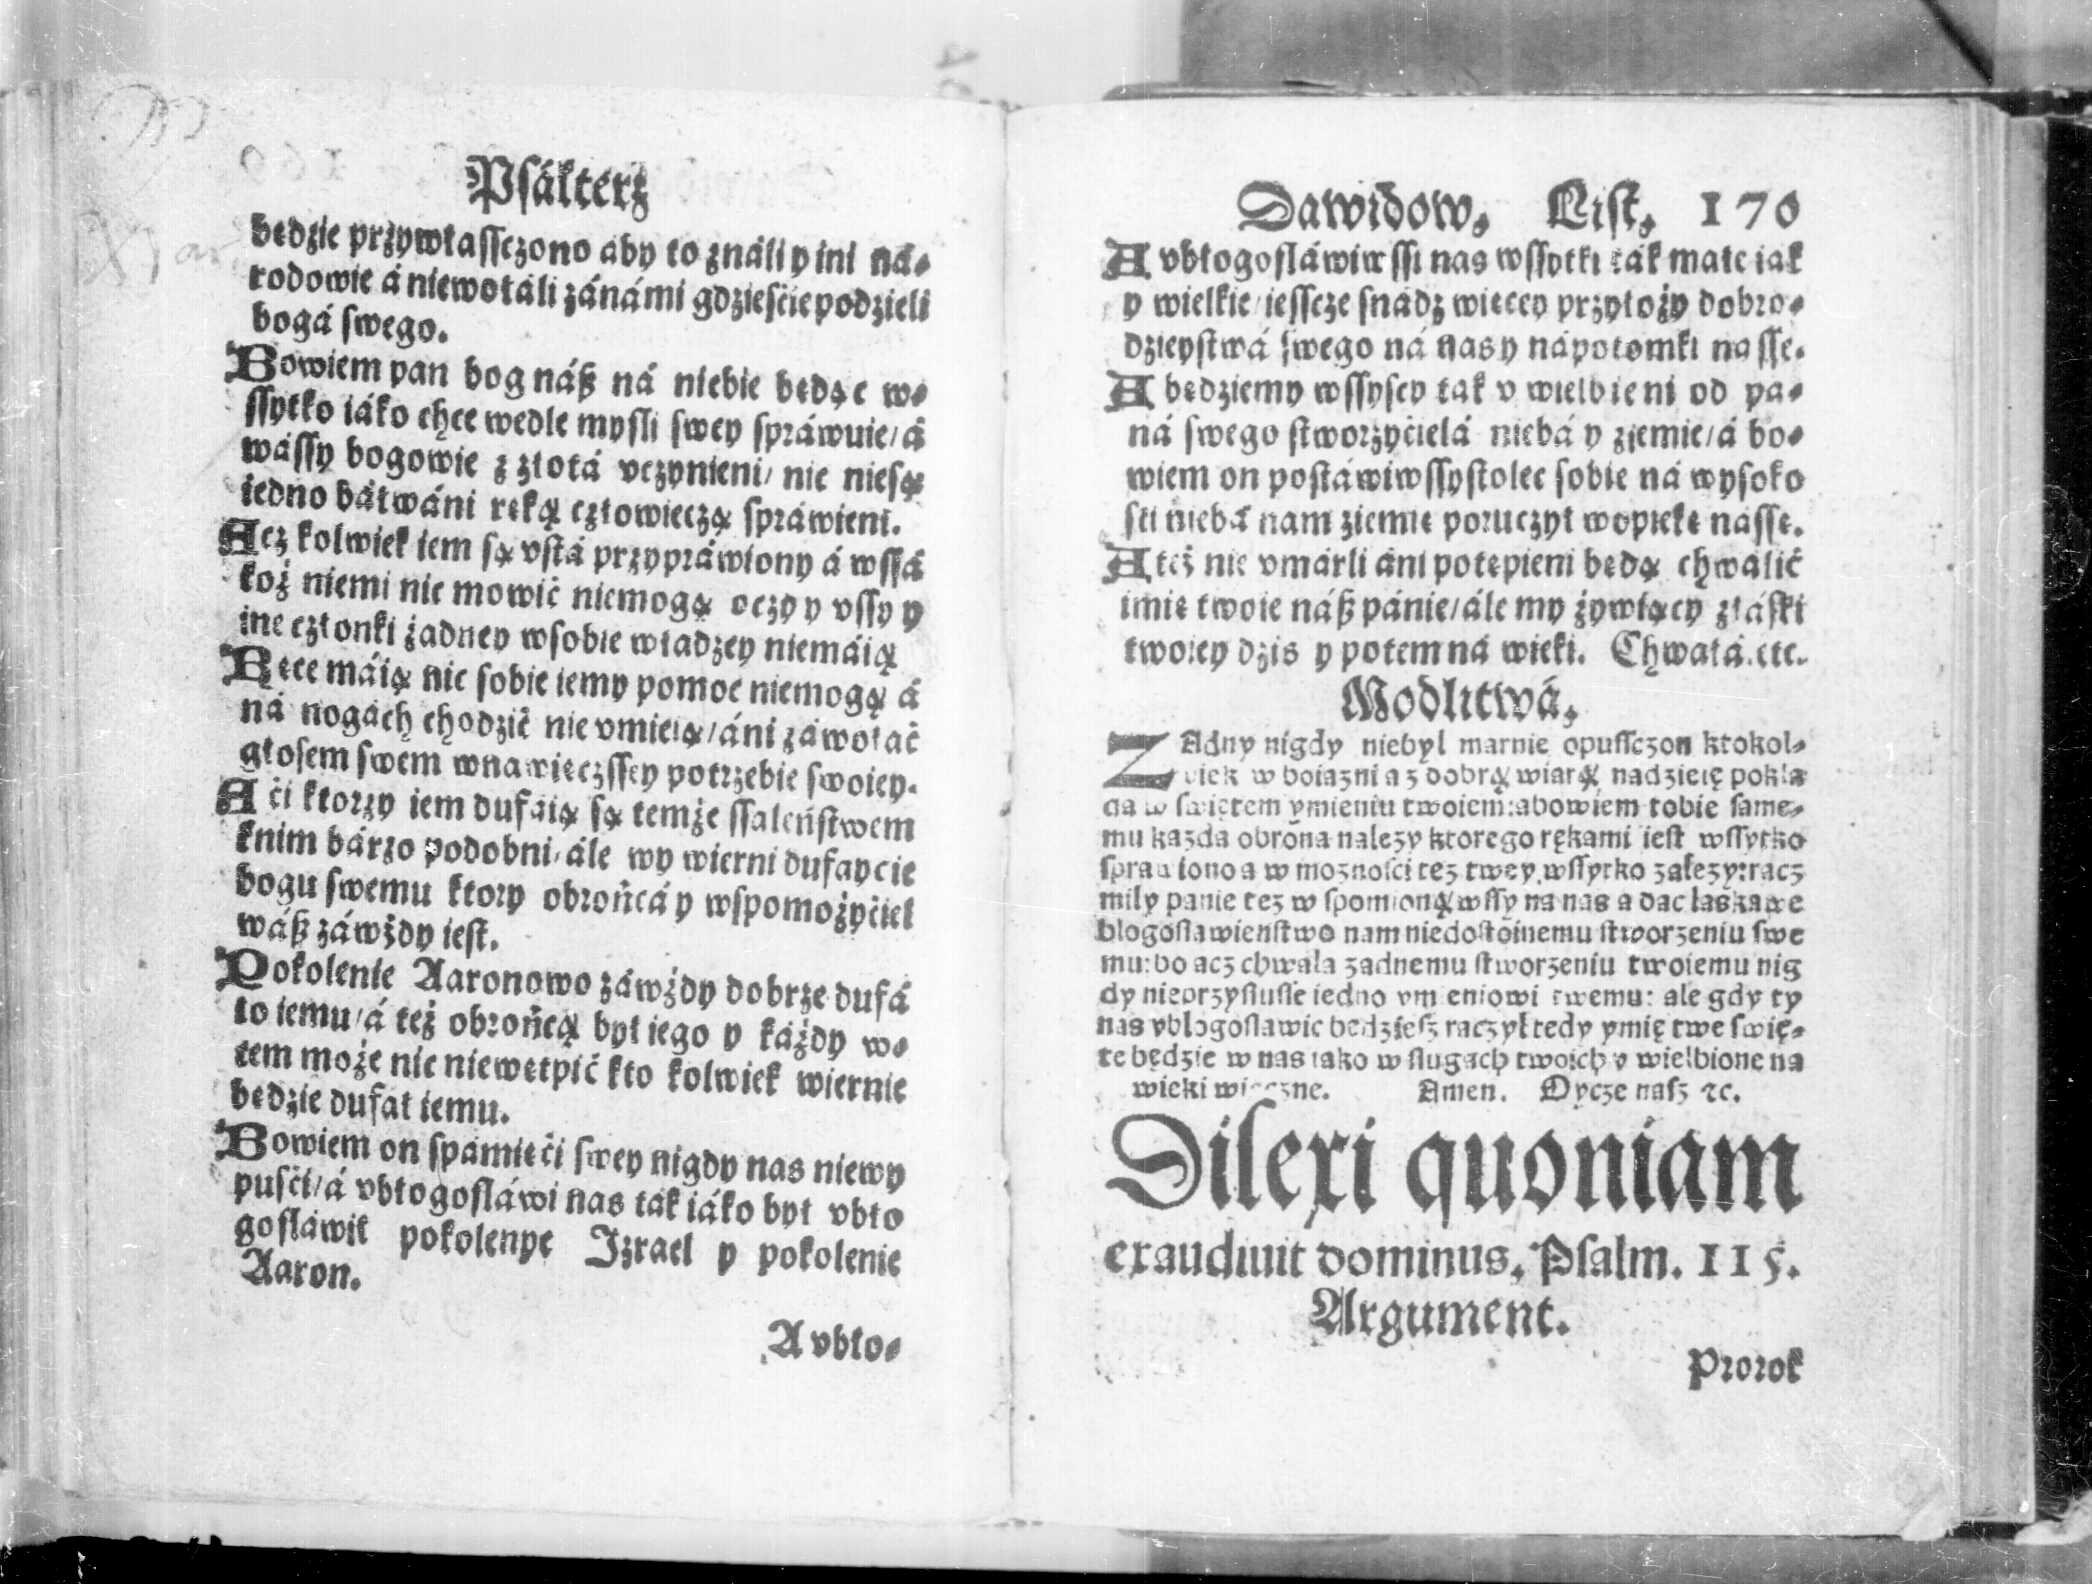 Psáłterz
będzie przywłassczono aby to ználi y ini ná⸗
rodowie á niewołáli zánámi gdzieście podzieli
bogá swego.
Bowiem pan bog náß ná niebie będąc w⸗
ssytko iáko chce wedle mysli swey spráwuie/á
wássy bogowie z złotá vczynieni/ nic niesą
iedno báłwáni ręką człowieczą spráwieni.
Acz kolwiek iem są vstá przypráwiony á wssá
koż niemi nic mowić niemogą oczy y vssy y
ine członki żadney wsobie władzey niemáią
Ręce máią nic sobie iemy pomoc niemogą á
ná nogách chodzić nie vmieią/áni záwołáć
głosem swem wnawięczssey potrzebie swoiey.
A ći ktorzy iem dufáią są temże ssaleństwem
knim bárzo podobni/ále wy wierni dufaycie
bogu swemu ktory obrońcá y wspomożyćiel
wáß záwżdy iest.
Pokolenie Aaronowo záwżdy dobrze dufá
ło iemu/á też obrońcą był iego y káżdy w⸗
tem może nic niewętpić kto kolwiek wiernie
będzie dufał iemu.
Bowiem on spámięći swey nigdy nas niewy
puśći/á vbłogosláwi nas ták iáko był vbło
gosláwił pokolenye Izrael y pokolenie
Aaron.
A vbło⸗
Dawidow. List. 170
A vbłogosláwiwssi nas wssytki ták máłe iák
y wielkie/iesscze snádz więcey przyłoży dobro⸗
dzieystwá swego ná nas y nápotomki násse.
A będziemy wssyscy ták v wielbieni od pa⸗
ná swego stworzyćielá niebá y ziemie/á bo⸗
wiem on postáwiwssystolec sobie ná wysoko
śći niebá nam ziemię poruczył wopiekę násse.
A też nie vmárli áni potępieni będą chwálić
imię twoie náß pánie/ále my żywiący złáski
twoiey dzis y potem ná wieki. Chwałá.etc.
Modlitwá.
ZAdny nigdy niebyl marnie opussczon ktokol⸗
wiek w boiazni a z dobrą wiarą nadzieię pokla
da w swiętem ymieniu twoiem:abowiem tobie same⸗
mu kazda obrona nalezy ktorego rękami iest wssytko
sprawiono a w moznosci tez twey wssytko zalezy:racz
mily panie tez w spomionąwssy na nas a dac laskawe
blogoslawienstwo nam niedostoinemu stworzeniu swe
mu:bo acz chwala zadnemu stworzeniu twoiemu nig
dy nieprzyslusse iedno ymieniowi twemu: ale gdy ty
nas vblogoslawic będziesz raczyl tedy ymię twe swię⸗
te będzie w nas iako w slugach twoich v wielbione na
wieki wieczne. Amen. Oycze nasz ꝛc.
Dilexi quoniam
exaudiuit dominus. Psalm. 115.
Argument.
Prorok